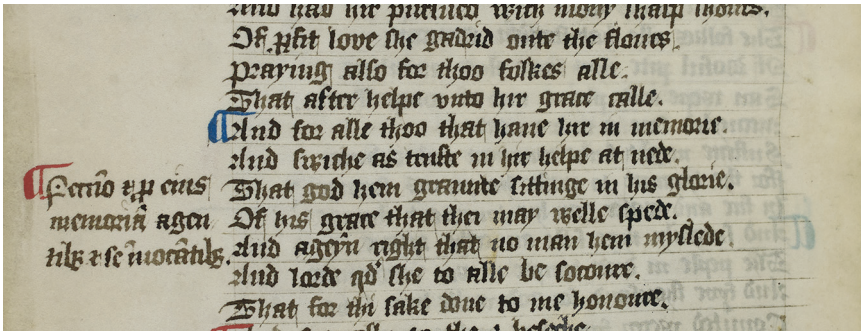 And had hir purtured with mony sharp shours.
Of ꝑfit love she gadrid oute the flours.
Praying also for thoo folkes alle.
That after helpe vnto hir grace calle.
¶And for alle thoo that haue hir in memorie.
And swiche as truste in hir helpe at nede.
That god hem graunte sittinge in his glorie.
Of his grace that thei may welle spede.
And ageyn right that no man hem myslede.
And lorde qd she to alle be socoure.
That for thi sake done to me honoure.
¶Peticio xp̄i eius
memoriā agen
tibꝫ & se īuocātibꝫ.